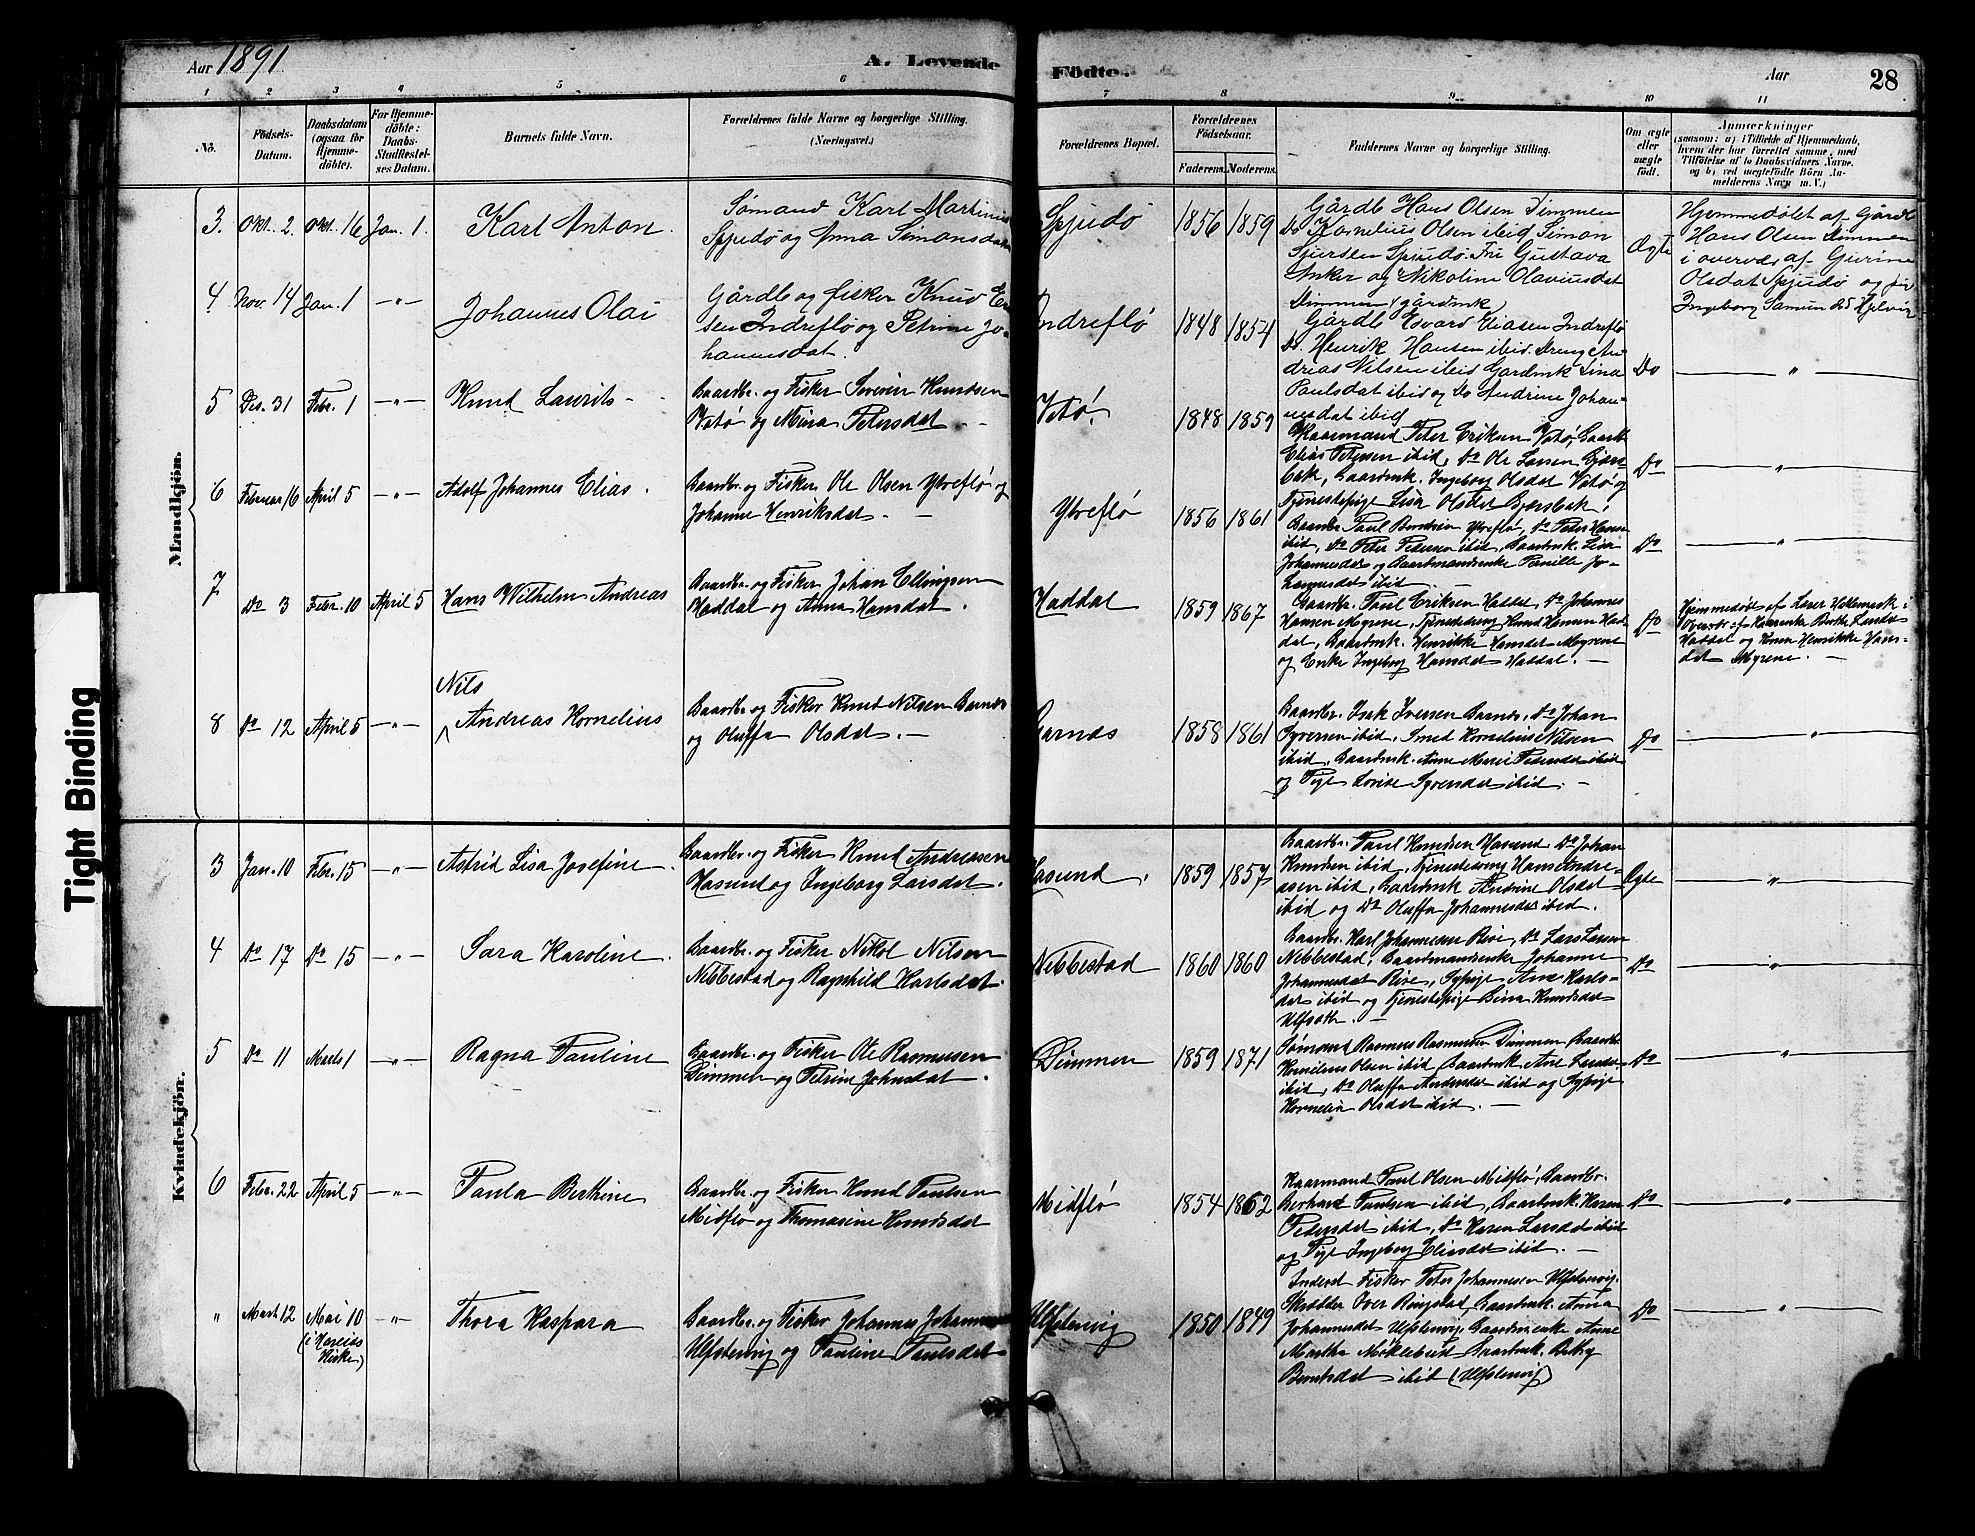 Aar 1891
A. Levende Födte.
Aar
28
1 2 3 4 5 6 7 8 9 10 11
No.
Födsels-
Datum.
Daabsdatum
(ogsaa for
Hjemme-
döbte).
For Hjemme-
döbte:
Daabs-
Stadfæstel-
ses Datum.
Barnets fulde Navn.
Forældrenes fulde Navne og borgerlige Stilling.
(Næringsvei.)
Forældrenes Bopæl.
Forældrenes
Födselsaar.
Faderens. Moderens.
Faddernes Navne og borgerlige Stilling.
Om ægte
eller
uægte
født.
Anmærkninger
(saasom: a) i Tilfælde af Hjemmedaab,
hvem der har forrettet samme, med
Tilföielse af to Daabsvidners Navne,
og b) ved uægtefödte Börn An-
melderens Navn m. V.)
Mandkjön.
3. Okt. 2 Okt. 16 Jan. 1. Karl Anton.
Sømand Karl Martinus
Spjudø og Anna Simonsdatter
Spjudø 1856 1859
Gårdb Hans Olsen Dimmen
Do Kornelius Olsen ibid Simon
Sjursen Spjudø. Fru Gustava
Anker og Nikoline Olaviusdat
Dimmen (gårdmk)
Ægte
Hjemmedøbt af Gårdb
Hans Olsen Dimmen
i overvær af Gurine
Olsdat Spjudø og
Ingeborg Samunsd
4 Nov. 14 Jan. 1 -"- Johannes Olai
Gårdb og fisker Knud
Indreflø og Petrine Jo-
hannesdat.
Indreflø 1848 1854
Gårdb Edvard Eliasen Indreflø
Do. Henrik Hansen ibid. Dreng An-
dreas Nilsen ibid Gårdmk Lina
Paulsdat ibid og Do Andrine Johan-
nesdat ibid
Do "
5 Des. 31 Febr. 1 -"- Knud Laurits
Gaardbr. og Fisker Severin Knudsen
Vatø og Mina Petersdat
Vatø 1848 1859
Kaarmand Peter Eriksen Vatø, Gaardb
Elias Petersen ibid, Do Ole Larsen
Gaardmk. Ingeborg Olsdat Vatø og
Tjenestepige Lisa Olsdat
Do "
6 Februar 16 April 5 -"- Adolf Johannes Elias.
Gaardbr. og Fisker Ole Olsen Ytreflø og
Johanne Henriksdat.
Ytreflø 1856 1861
Gaardbr. Paul Berntsen Ytreflø, Do Peder Hansen
ibid, Do Peter Pedersen ibid, Gaardmk. Lisa
Johannesdat og Gaardmandsenke Pernille Jo-
hannesdat ibid
Do "
7 Do 3 Febr. 10 April 5 Hans Wilhelm Andreas
Gaardbr. og Fisker Johan Ellingsen
Haddal og Anna Hansdat.
Haddal 1859 1867
Gaardbr. Paul Eriksen Haddal, Do Johannes
Hansen Myrene, Tjenestedreng Knud Hansen Had-
dal, Gaardmk. Henrikke Hansdat Myrene
og Enke Ingeborg Hansdat Haddal.
Do
Hjemmedøbt af Lærer
Overvær af Berthe Larsdat
Haddal og Henrikke Hans-
dat Myrene.
8 Do 12 April 5 -"- Nils
Andreas Kornelius
Gaardbr. og Fisker Knud Nilsen Garnes
og Oluffa Olsdat.
Garnæs 1858 1861
Gaardbr. Isak Iversen Garnæs, Do Johan
Syversen ibid, Smed Kornelius Nilsen
ibid, Gaardmk. Anne Marie Pedersdat ibid
og Pige Lovise Syversdat ibid.
Do "
Kvindekjön.
3 Jan. 10 Febr. 15 -"- Astrid Lisa Josefine.
Gaardbr. og Fisker Knud Andreasen
Hasund og Ingeborg Larsdat.
Hasund. 1859 1857
Gaardbr. Paul Knudsen Hasund, Do Johan
Knudsen ibid, Tjenestedreng Hans Andre-
asen ibid, Gaardmk Andrine Olsdat
ibid og Do Oluffa Johannesdat ibid.
Ægte "
4 Do 17 Do 15 -"- Sara Karoline.
Gaardbr. og Fisker Nikol Nilsen
Nebbestad og Ragnhild Karlsdat.
Nebbestad 1860 1860
Gaardbr. Karl Johannesen Rise, Do Lars Larsen
Nebbestad, Gaardmandsenke Johanne
Johannesdat Rise, Sypige Ane Karls-
dat ibid og Tjenestepige Gina Knudsdat
Do "
5 Do 11 Marts 1 -"- Ragna Pauline
Gaardbr. og Fisker Ole Rasmussen
Dimmen og Petrine Johnsdat.
Dimmen 1859 1871
Sømand Rasmus Rasmussen Dimmen Gaardbr
Kornelius Olsen ibid Gaardmk Ane Larsdat
ibid, Do Oluffa Andersdat ibid og Sypige
Kornelia Olsdat ibid.
Do "
6 Febr. 22 April 5 -"- Paula Berthine
Gaardbr. og Fisker Knud Paulsen
Midflø og Thomasine Knudsdat
Midflø 1854 1862
Kaarmand Paul Olsen Midflø, Gaardbr.
Berhard Paulsen ibid, Gaardmk. Karen
Pedersdat ibid, Do Karen Larsdat ibid
og Pige Ingeborg Eliasdat ibid.
Do "
" Mart 12 Mai 10
(i Hareids
Kirke)
-"- Thora Kaspara
Gaardbr. og Fisker Johannes Johannesen
Ulfstenvig og Pauline Paulsdat
Ulfstenvig 1850 1849
Inderst Fisker Peter Johannesen Ulfstenvig.
Skrædder Iver Ringstad, Gaardmk. Anna
Johannesdat Ulfstenvig. Gaardm.enke Anne
Martha MØklebust Gaardmk. Bethy
Berntsdat ibid (Ulfstenvig)
Do "
Tight Binding